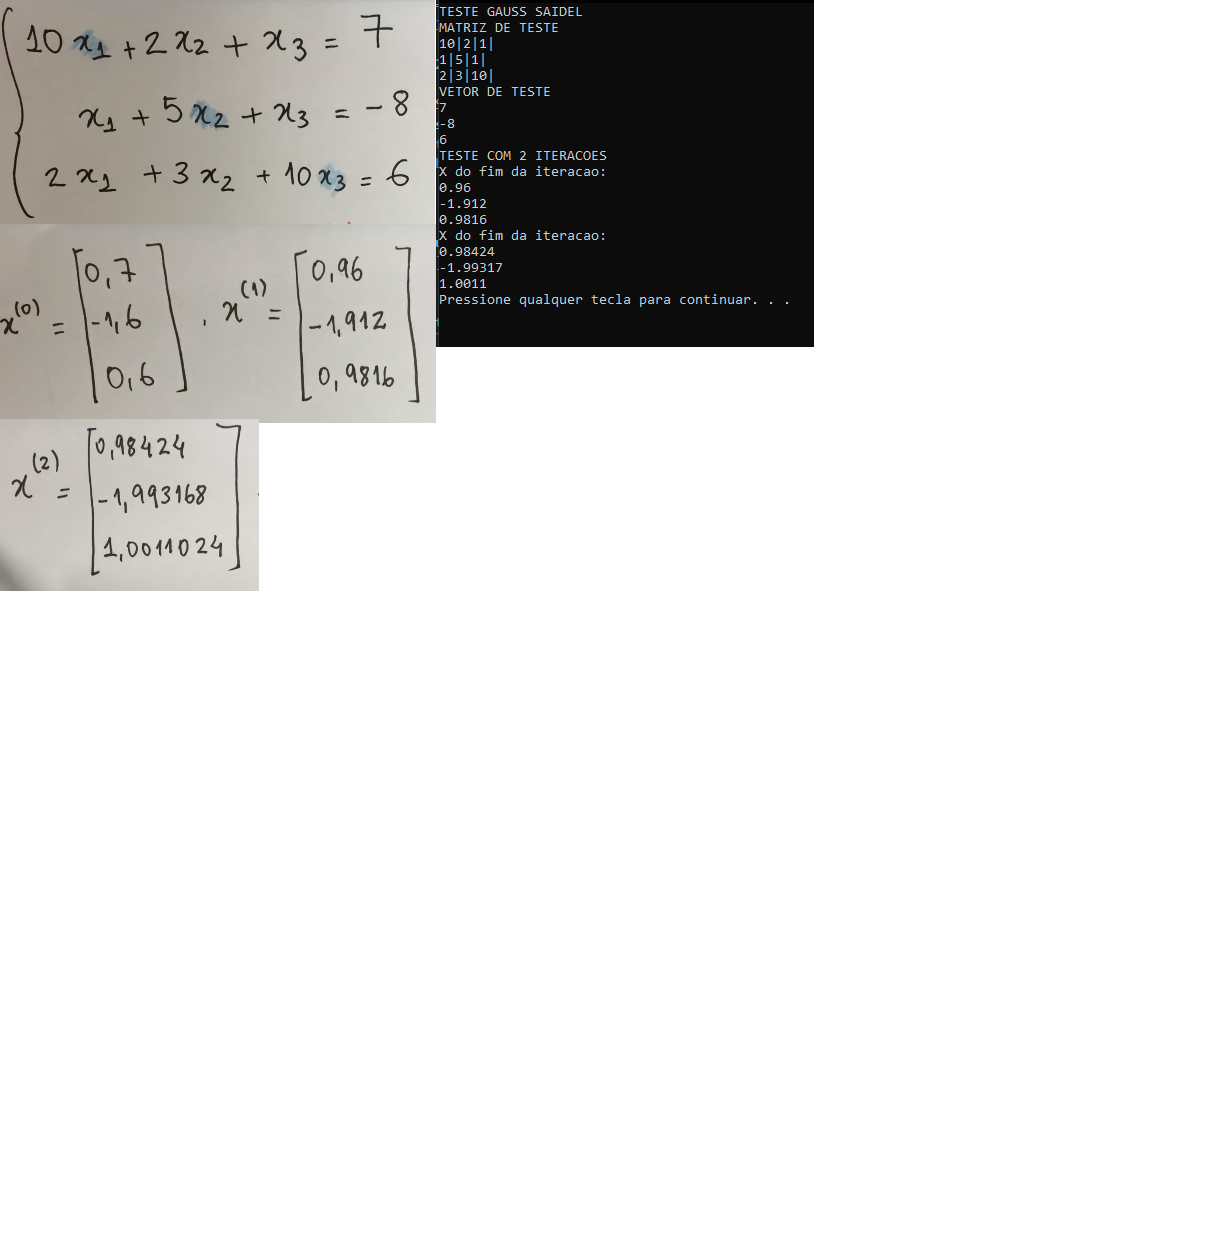 10x₁ + 2x₂ + x₃ = 7
x₁ + 5x₂ + x₃ = -8
2x₁ + 3x₂ + 10x₃ = 6
x⁽⁰⁾ = [0,7 -1,6 0,6] , x⁽¹⁾ = [0,96 -1,912 0,9816]
x⁽²⁾ = [0,98424 -1,993168 1,0011024]
TESTE GAUSS SAIDEL
MATRIZ DE TESTE
10|2|1|
1|5|1|
2|3|10|
VETOR DE TESTE
7
-8
6
TESTE COM 2 ITERACOES
X do fim da iteracao:
0.96
-1.912
0.9816
X do fim da iteracao:
0.98424
-1.99317
1.0011
Pressione qualquer tecla para continuar. . .